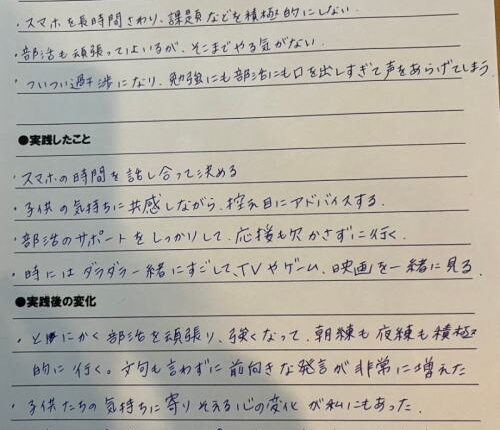 ・スマホを長時間さわり、課題などを積極的にしない。
・部活も頑張ってはいるが、そこまでやる気がない。
・ついつい過干渉になり、勉強にも部活にも口を出しすぎて声をあらげてしまう。
●実践したこと
・スマホの時間を話し合って決める
・子供の気持ちに共感しながら、控え目にアドバイスする。
・部活のサポートをしっかりして、応援も欠かさずに行く。
・時にはダラダラ一緒にすごして、TVやゲーム、映画を一緒に見る。
●実践後の変化
・とにかく部活を頑張り、強くなって、朝練も夜練も積極
的に行く。文句も言わずに前向きな発言が非常に増えた
・子供たちの気持ちに寄りそえる心の変化が私にもあった。